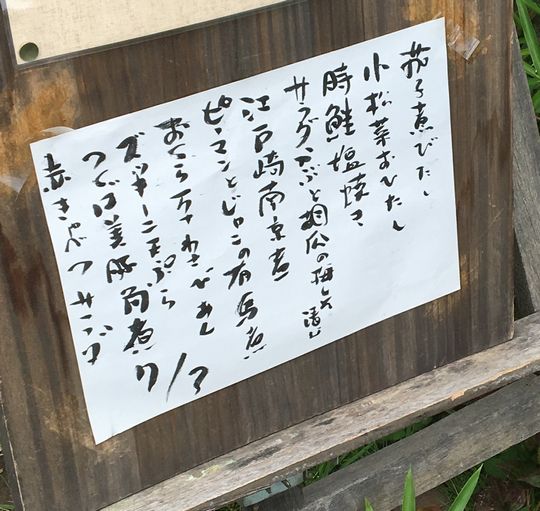 茄子煮びたし
小松菜おひたし
時鮭塩焼き
サラダかぶと胡瓜の梅しそ漬け
江戸崎南京煮
ピーマンとじゃこの有馬煮
おくら万十わさびあん
ズッキーニ天ぷら
つくば美豚角煮
赤きゃべつサラダ
7/3